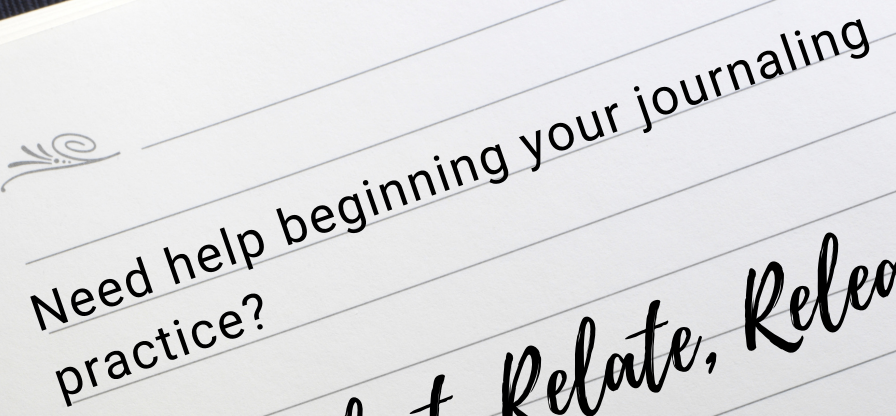 Need help beginning your journaling
practice?
Relate,